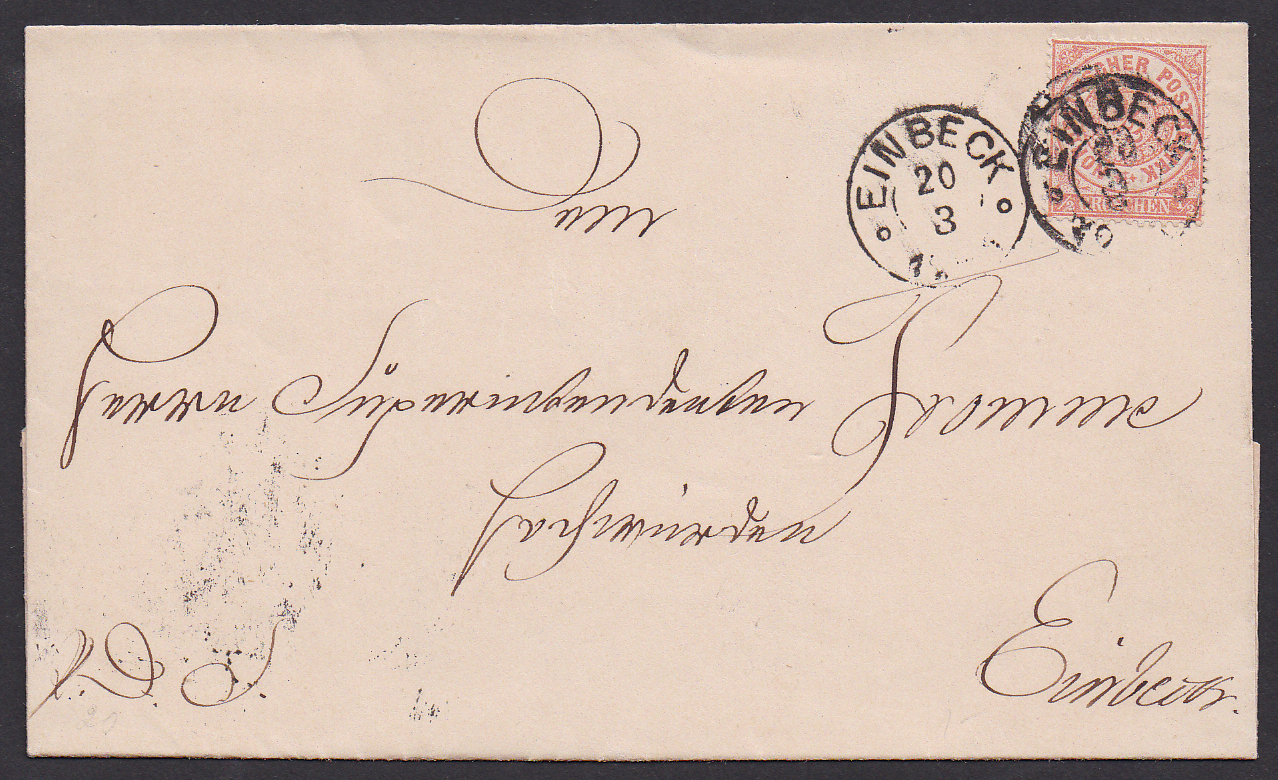 EINBECK
20
3
EINBECK
20
GROSCHEN
Dem
Herrn Superintendenten Fromme
Hochwürden
Einbeck.